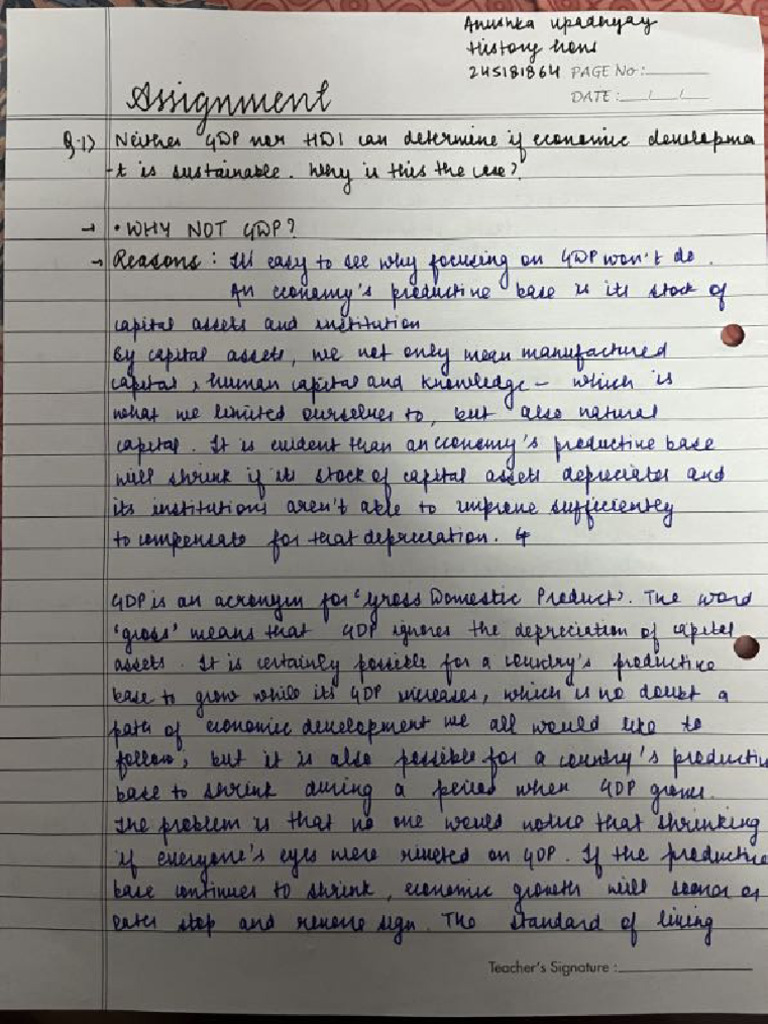 Anushka Upadhyay
History Hons
245181864 PAGE No:
DATE: / /
Assignment
Q.1) Neither GDP nor HDI can determine if economic developme
-t is sustainable. Why is this the case?
→ • WHY NOT GDP?
→ Reasons: It's easy to see why focusing on GDP won't do.
An economy's productive base is its stock of
capital assets and institution
By capital assets, we not only mean manufactured
capital, human capital and knowledge – which is
what we limited ourselves to, but also natural
capital. It is evident than an economy's productive base
will shrink if its stock of capital assets depreciates and
its institutions aren't able to improve sufficiently
to compensate for that depreciation.
GDP is an acronym for 'Gross Domestic Product'. The word
'gross' means that GDP ignores the depreciation of capital
assets. It is certainly possible for a country's productive
base to grow while its GDP increases, which is no doubt a
path of economic development we all would like to
follow, but it is also possible for a country's productiv
base to shrink during a period when GDP grows.
The problem is that no one would notice that shrinking
if everyone's eyes were riveted on GDP. If the productive
base continues to shrink, economic growth will sooner or
later stop and reverse sign. The standard of living
Teacher's Signature :